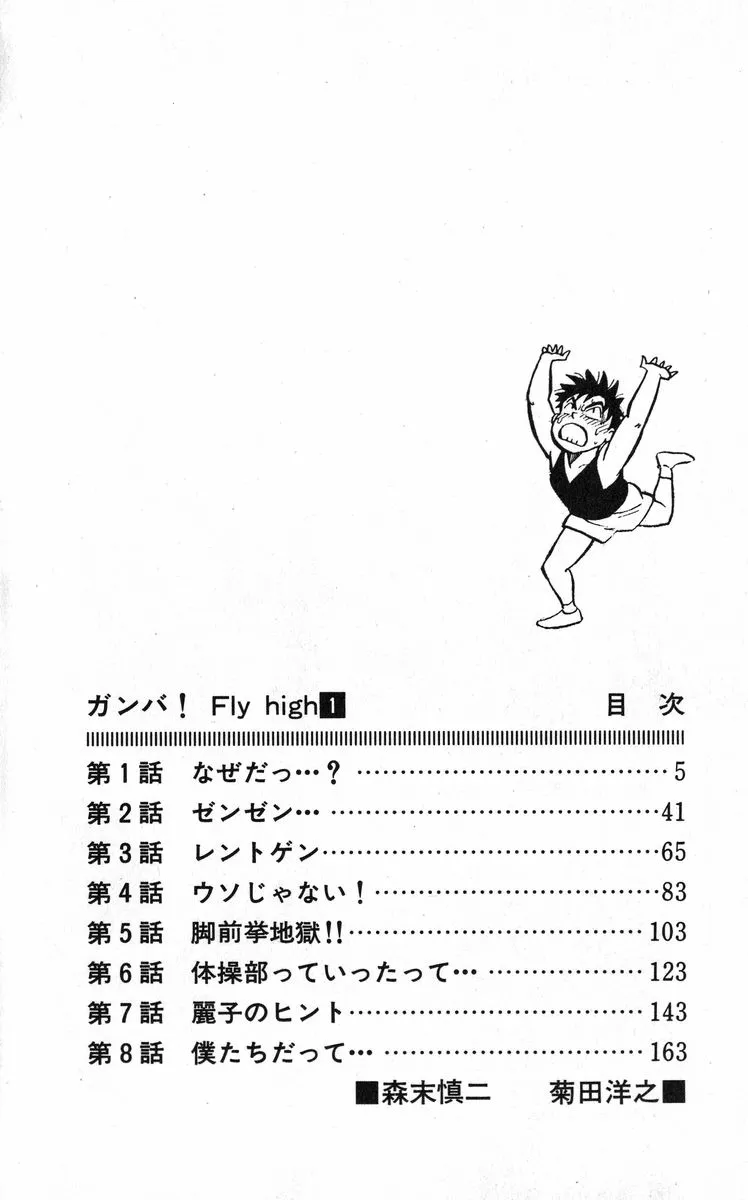 ガンバ! Fly high1 目次
第1話 なぜだっ…? 5
第2話 ゼンゼン… 41
第3話 レントゲン 65
第4話 ウソじゃない! 83
第5話 脚前挙地獄!! 103
第6話 体操部っていったって… 123
第7話 麗子のヒント 143
第8話 僕たちだって… 163
■森末慎二 菊田洋之■